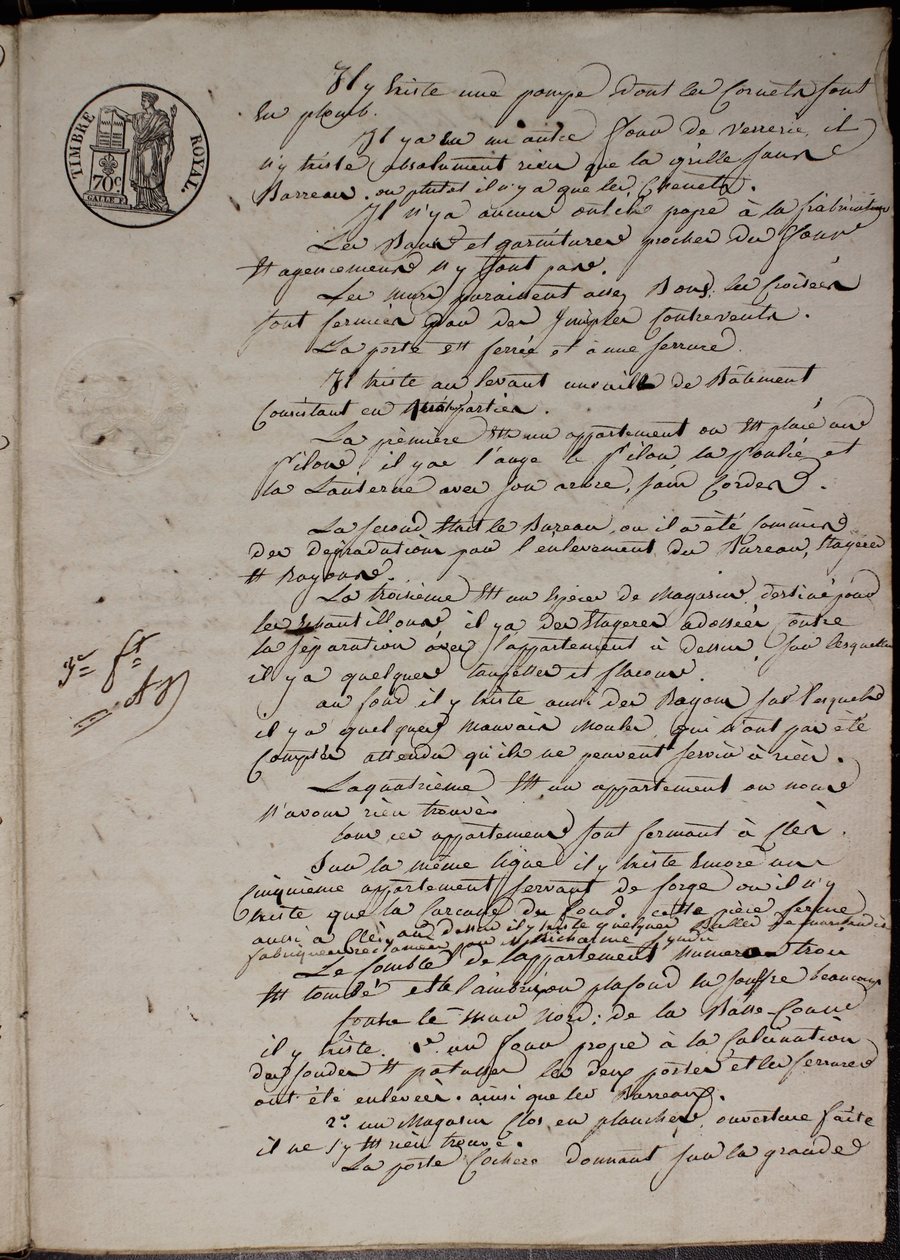 TIMBRE ROYAL.
70c
GALLE F.
Il y Existe une pompe dont les Cornets sont
En plomb.
Il y a En un autre four de verrerie, il
n'y Existe absolument rien que la grille sans
Barreau, ou plutot il n'y a que les Chenets.
Il n'y a aucun outils propre à la frabrication
Les Bancs et garnitures proches du four
Et agencements n'y sont pas.
Les murs paraissent assez Bons, les Croisées
sont fermées par des simples Contrevents.
La porte Est ferrée et à une serrure.
Il Existe au levant une aille de Bâtiment
Consistant en parties.
La prémière Est un appartement ou Est placé un
Pilon, il y a l'auge le Pilon la Poulie et
la Lanterne avec son arbre, sans Cordes.
La second Etait le Bureau, ou il a été Commis
des dégradations par l'enlevement du Bureau, Etagéres
Et Rayons.
La troisième Est un Espèce de Magasin destiné pour
les Echantillons il y a des Etageres adossées contre
la séparation avec l'appartement à dessus sur lesquelles
il y a quelques toupettes et flacons.
au fond il y Existe aussi des Rayons sur lesquels
il y a quelques mauvais moules qui n'ont pas été
Comptés attendu qu'ils ne peuvent servir à rien.
La quatrième Est un appartement ou nous
n'avons rien trouvés
tous ces appartements sont fermant à Clés.
Sur la même ligne il y Existe Encore un
Cinquième appartement servant de forge ou il n'y
Existe que la Carcasse du fond. cette pièce ferme
aussi à Clés au dessus il y Existe quelques Balles de marchandises
fabriquées réclamées par Mr Richarme Syndic
Le Comble de l'appartement Numero trois
Est tombé et le lambris ou plafond en souffre beaucoup
Contre le mur Nord, de la Basse Cour
il y Existe. 1° un four propre à la Calcination
des soudes Et potasses les deux portes et les serrures
ont été enlevées. ainsi que les Barreaux.
2°. un Magasin Clos en planches, ouverture faite
il ne s'y Est rien trouvé.
La porte Cochere donnant sur la grande
3e ft